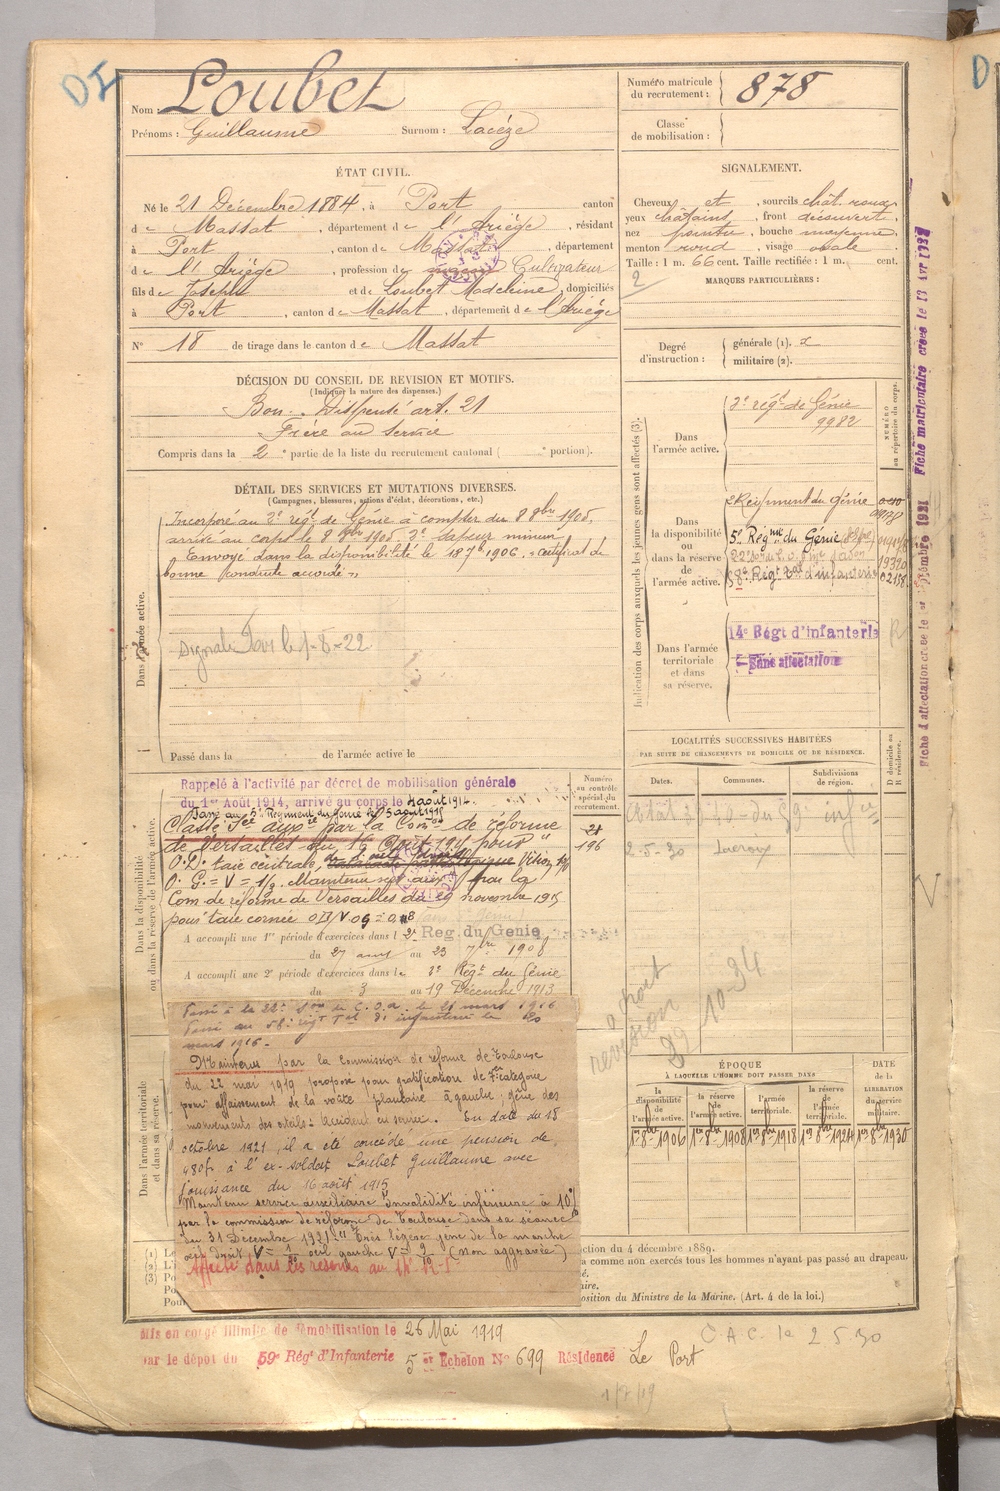 DI
Nom : Loubet
Prénoms : Guillaume Surnom : Lacèze
Numéro matricule du recrutement : 878
Classe de mobilisation :
ÉTAT CIVIL.
Né le 21 Décembre 1884, à Port canton
de Massat, département de l'Ariège, résidant
à Port, canton de Massat département
de l'Ariège, profession de Cultivateur
fils de Joseph et de Loubet Madeleine, domiciliés
à Port, canton de Massat, département de l'Ariège
N° 18 de tirage dans le canton de Massat
SIGNALEMENT.
Cheveux et, sourcils chât. roux
yeux châtains, front découvert,
nez pointu, bouche moyenne,
menton rond, visage ovale
Taille : 1 m. 66 cent. Taille rectifiée : 1 m. cent.
2
MARQUES PARTICULIÈRES :
Degré d'instruction : générale (1). 2
militaire (2).
DÉCISION DU CONSEIL DE REVISION ET MOTIFS.
(Indiquer la nature des dispenses.)
Bon. Dispensé art. 21
Frère au service
Compris dans la 2e partie de la liste du recrutement cantonal ( e portion).
DÉTAIL DES SERVICES ET MUTATIONS DIVERSES.
(Campagnes, blessures, actions d'éclat, décorations, etc.)
Dans l'armée active.
Incorporé au 2e régt de Génie à compter du 8 8bre 1905,
arrivé au corps le 8 8bre 1905, 2e sapeur mineur
Envoyé dans la disponibilité le 18 7 1906. "certificat de
bonne conduite accordé"
Signalé le 1-8-22
Passé dans la de l'armée active le
Indication des corps auxquels les jeunes gens sont affectés (3).
NUMÉRO au répertoire du corps.
Dans l'armée active.
2e régt de Génie
9982
Dans la disponibilité ou dans la réserve de l'armée active.
2e Régiment du Génie
5e Régme du Génie
58e Régt Tal d'infanterie 02158
Dans l'armée territoriale et dans sa réserve.
14e Régt d'infanterie
Sans affectation
LOCALITÉS SUCCESSIVES HABITÉES
PAR SUITE DE CHANGEMENTS DE DOMICILE OU DE RÉSIDENCE.
Dates. Communes. Subdivisions de région. D domicile ou R résidence.
2-5-30 Lacroux
Dans la disponibilité ou dans la réserve de l'armée active.
Numéro au contrôle spécial du recrutement.
21
196
Rappelé à l'activité par décret de mobilisation générale
du 1er Août 1914, arrivé au corps le 4 août 1914.
Passé au 5e Régiment du Génie le 5 août 1915
Classé Sce auxre par la Comon de réforme
de Versailles du 16 Août 1915 pour "
O.D. taie centrale, Vision 1/10
O.G. = V = 1/2. Maintenu sce aux par la
Com de réforme de Versailles du 29 novembre 1915
pour taie cornée OD/V OG = 0,8
A accompli une 1re période d'exercices dans le 2e Reg. du Génie
du 27 août au 23 7bre 1908
A accompli une 2e période d'exercices dans le 2e Régt du Génie
du 3 au 19 Décembre 1913
Dans l'armée territoriale et dans sa réserve.
Passé à la 22e Son de C.O.A. le 21 mars 1916
Passé au 58e régt Tal d'infanterie le 20
mars 1916.-
Maintenu par la Commission de réforme de Toulouse
du 22 mai 1919 proposé pour gratification de 7e catégorie
pour affaissement de la voûte plantaire à gauche; gêne des
mouvements des orteils: accident en service. En date du 18
octobre 1921, il a été concédé une pension de
480f à l'ex-soldat Loubet Guillaume avec
jouissance du 16 août 1915
Maintenu service auxiliaire Invalidité inférieure à 10%
par la commission de réforme de Toulouse dans sa séance
du 31 Décembre 1921 "Très légère gêne de la marche
œil droit V = 1 œil gauche V = 9 (non aggravée)
Affecté dans les réserves au 14e R.I
à droit
revision
10-34
ÉPOQUE
À LAQUELLE L'HOMME DOIT PASSER DANS
la disponibilité de l'armée active. la réserve de l'armée active. l'armée territoriale. la réserve de l'armée territoriale. DATE de la LIBÉRATION du service militaire.
1er-8b-1906 1er-8b-1908 1er 8b-1918 1er 8b-1924 1er 8b-1930
(1) Le
(2) L'i
(3) Po
Pou
ction du 4 décembre 1889.
a comme non exercés tous les hommes n'ayant pas passé au drapeau.
osition du Ministre de la Marine. (Art. 4 de la loi.)
Mis en congé illimité de démobilisation le 26 Mai 1919
par le dépôt du 59e Régt d'Infanterie 5er Echelon N° 699 Résidence Le Port
C.A.C. le 2 5 30
Fiche d'affectation créée le 1er 1921 Fiche matriculaire créée le 13 Avr 1927
D